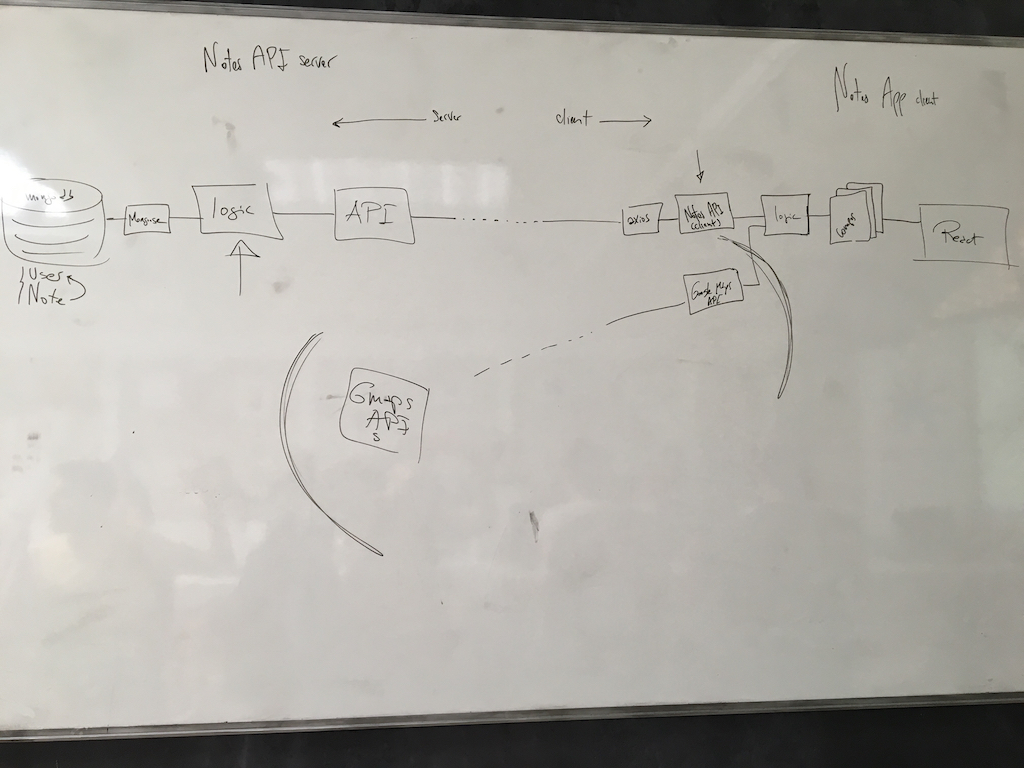 Notes API server
Notes App client
Server
client
mongodb
Mongoose
logic
API
axios
Notes API
(client)
logic
Comps
React
User
Note
Google Maps
API
Gmaps
API
s